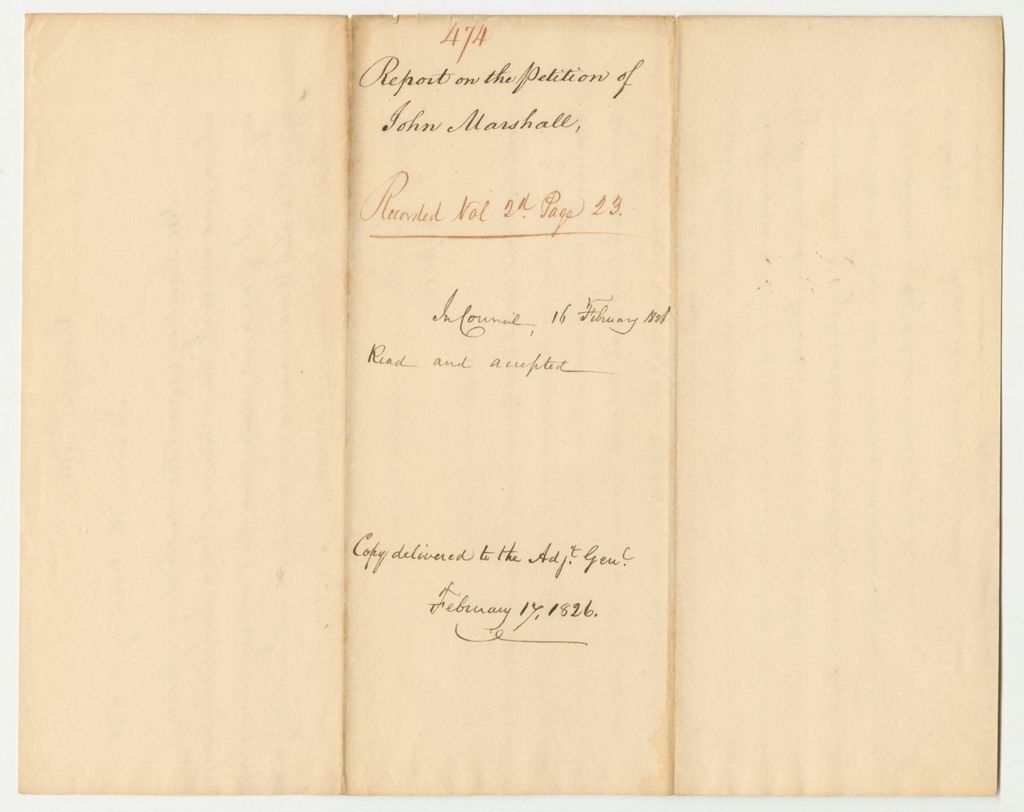 474
Report on the Petition of
John Marshall,
Recorded Vol 2d. Page 23.
In Council, 16 February 1826
Read and accepted
Copy delivered to the Adjt. Genl.
February 17, 1826.